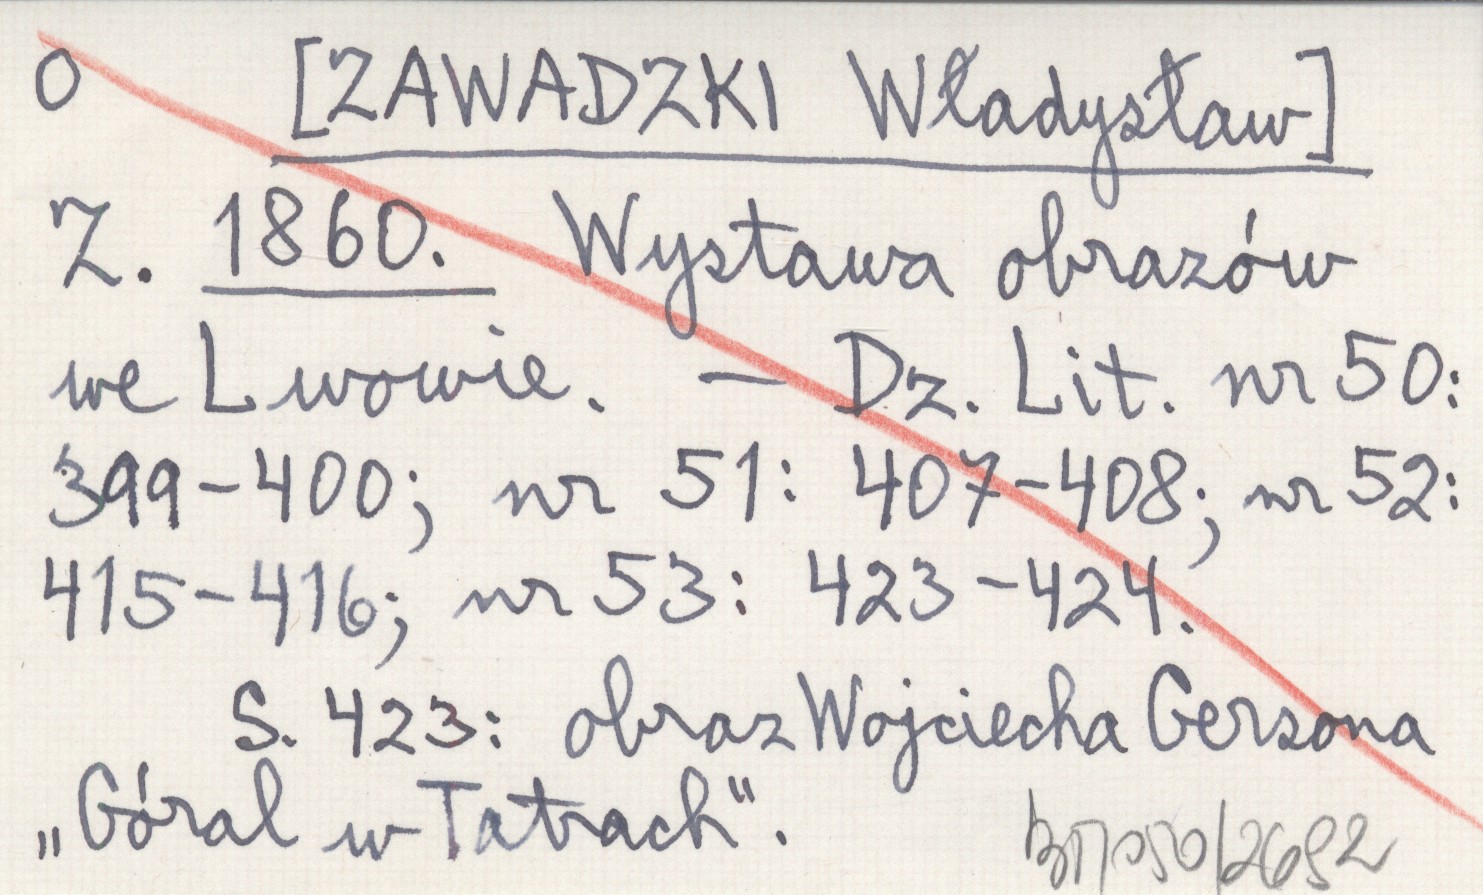 O [ZAWADZKI Władysław]
Z. 1860. Wystawa obrazów
we Lwowie. — Dz. Lit. nr 50:
399-400; nr 51: 407-408; nr 52:
415-416; nr 53: 423-424.
S. 423: obraz Wojciecha Gersona
„Góral w Tatrach".